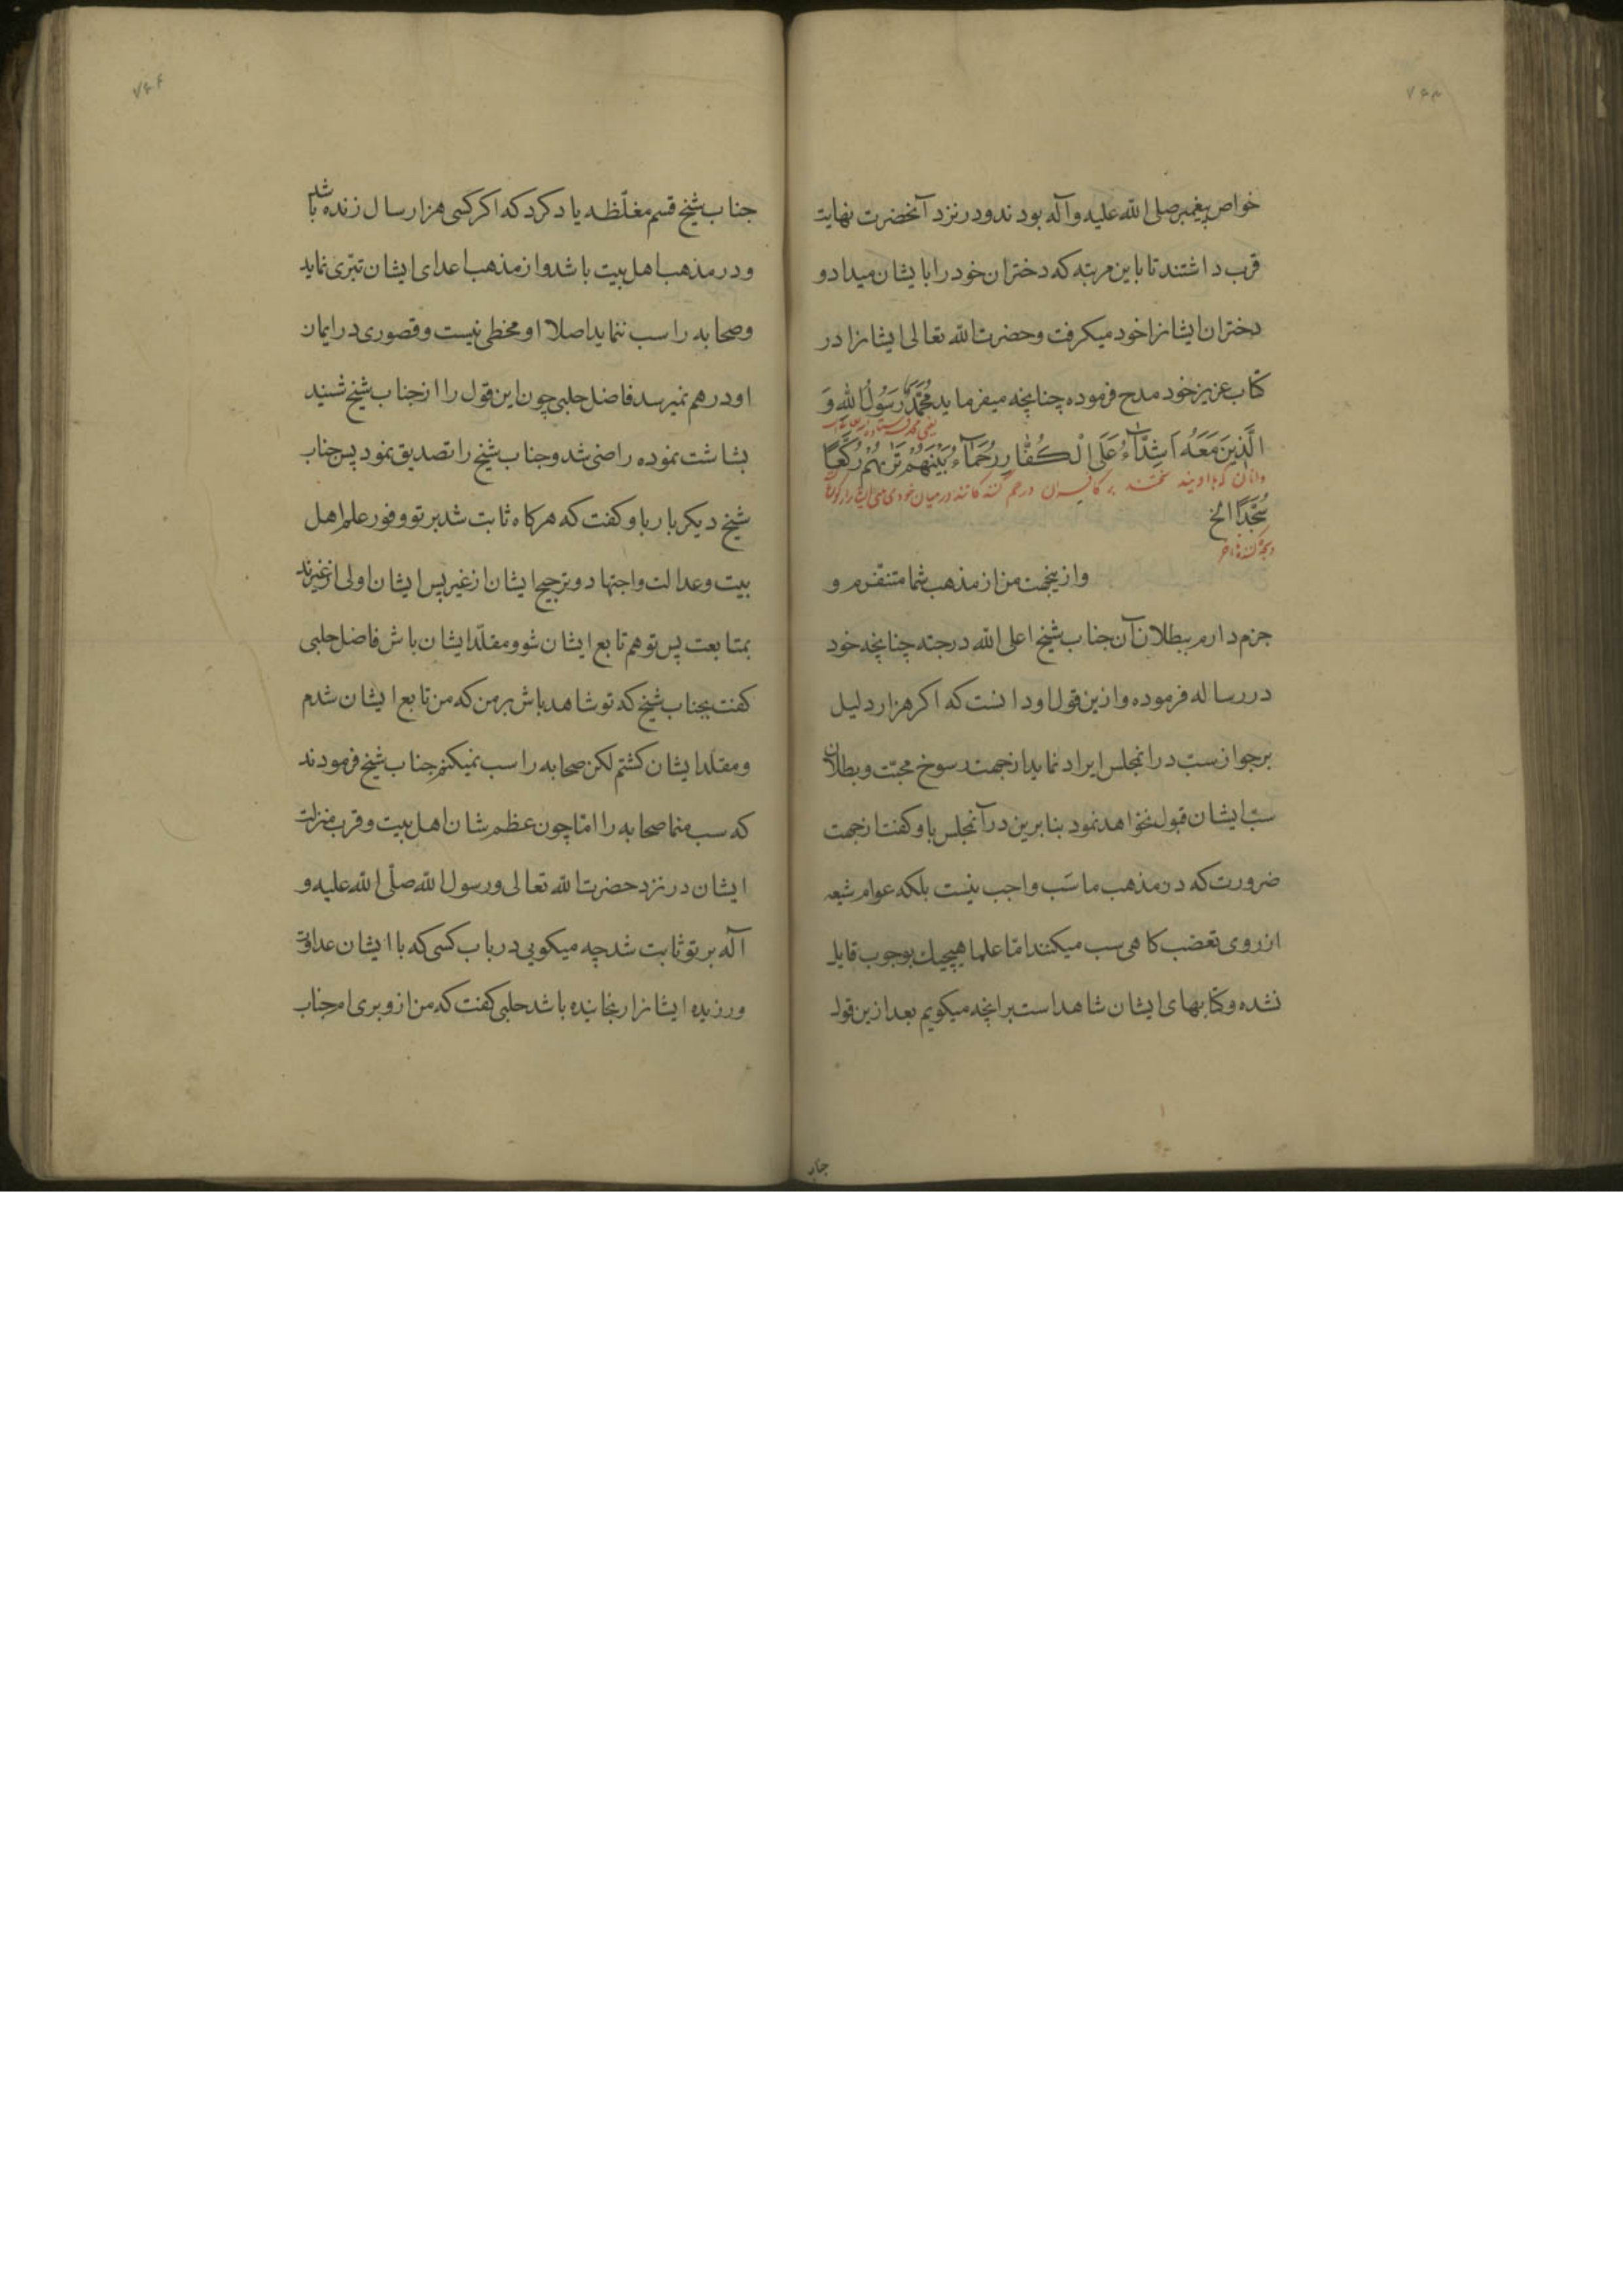 ۷۶۳
خواص پیغمبر صلی الله علیه وآله بودند ودر نزد آنحضرت نهایت
قرب داشتند تا باین مرتبه که دختران خود را بایشان میداد و
دختران ایشانرا خود میکرفت وحضرت الله تعالی ایشانرا در
کتاب عزیز خود مدح فرموده چنانچه میفرماید مُحَمَّدٌ رَسُولُ اللهِ وَ
یعنی محمد فرستاده
الَّذِينَ مَعَهُ اَشِدّٰاءُ عَلَى الْكُفّٰارِ رُحَمٰاءُ بَيْنَهُمْ تَرٰيهُمْ رُكَّعًا
وانان که بااویند سختند بر کافران و رحم کنندکانند در میان خود می بینی ایشانرا
سُجَّدًا الخ
وازینجهت من از مذهب شما متنفّرم و
جزم دارم ببطلان آن جناب شیخ اعلی الله درجته چنانچه خود
در رساله فرموده وازین قول او دانست که اکر هزار دلیل
بر جواز سبّ درانمجلس ایراد نماید از جهت رسوخ محبّت وبطلان
سبّ ایشان قبول نخواهد نمود بنابرین در آنمجلس باو کفت از جهت
ضرورت که در مذهب ما سَب واجب نیست بلکه عوام شیعه
از روی تعصّب کاهی سب میکنند امّا علما هیچیك بوجوب قایل
نشده وکتابهای ایشان شاهد است برانچه میکویم بعد ازین قول
جناب
۷۶۴
جناب شیخ قسم مغلّظه یاد کرد که اکر کسی هزار سال زنده باشد
ودر مذهب اهل بیت باشد واز مذهب اعدای ایشان تبرّی نماید
وصحابه را سب ننماید اصلا او مخطی نیست وقصوری در ایمان
او در هم نمیرسد فاضل حلبی چون این قول را از جناب شیخ شنید
بشاشت نموده راضی شد وجناب شیخ را تصدیق نمود پس جناب
شیخ دیکر بار باو کفت که هرکاه ثابت شد بر تو وفور علم اهل
بیت وعدالت واجتهاد وترجیح ایشان از غیر پس ایشان اولی از غیرند
بمتابعت پس تو هم تابع ایشان شو ومقلّد ایشان باش فاضل حلبی
کفت بجناب شیخ که تو شاهد باش بر من که من تابع ایشان شدم
ومقلد ایشان کشتم لکن صحابه را سب نمیکنم جناب شیخ فرمودند
که سب منما صحابه را امّا چون عظم شان اهل بیت وقرب منزلت
ایشان در نزد حضرت الله تعالی ورسول الله صلّی الله علیه و
آله بر تو ثابت شد چه میکویی در باب کسی که با ایشان عداوت
ورزیده ایشانرا رنجانیده باشد حلبی کفت که من ازو بری ام جناب